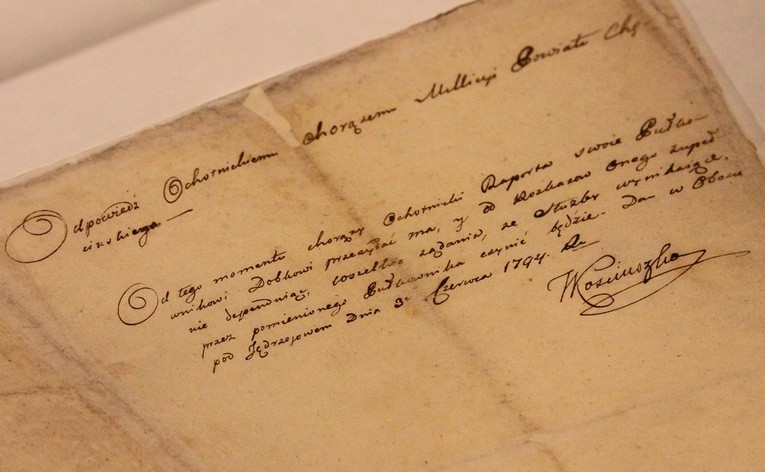 Odpowiedź Ochotnickiemu Chorążemu Millicyi Powiatu Chę-
cinskiego —
Od tego momentu chorąży Ochotnicki Raporta swoie Pułko-
wnikowi Dobkowi przesyłać ma, y od Rozkazow Onego zupeł
nie dependuiąc, wszelkie żądania, ze Służby wynikaiące,
przez pomienionego Pułkownika czynić będzie. Dan w Obozie
pod Jędrzejowem Dnia 3. Czerwca 1794. Ru
TKosciuszko